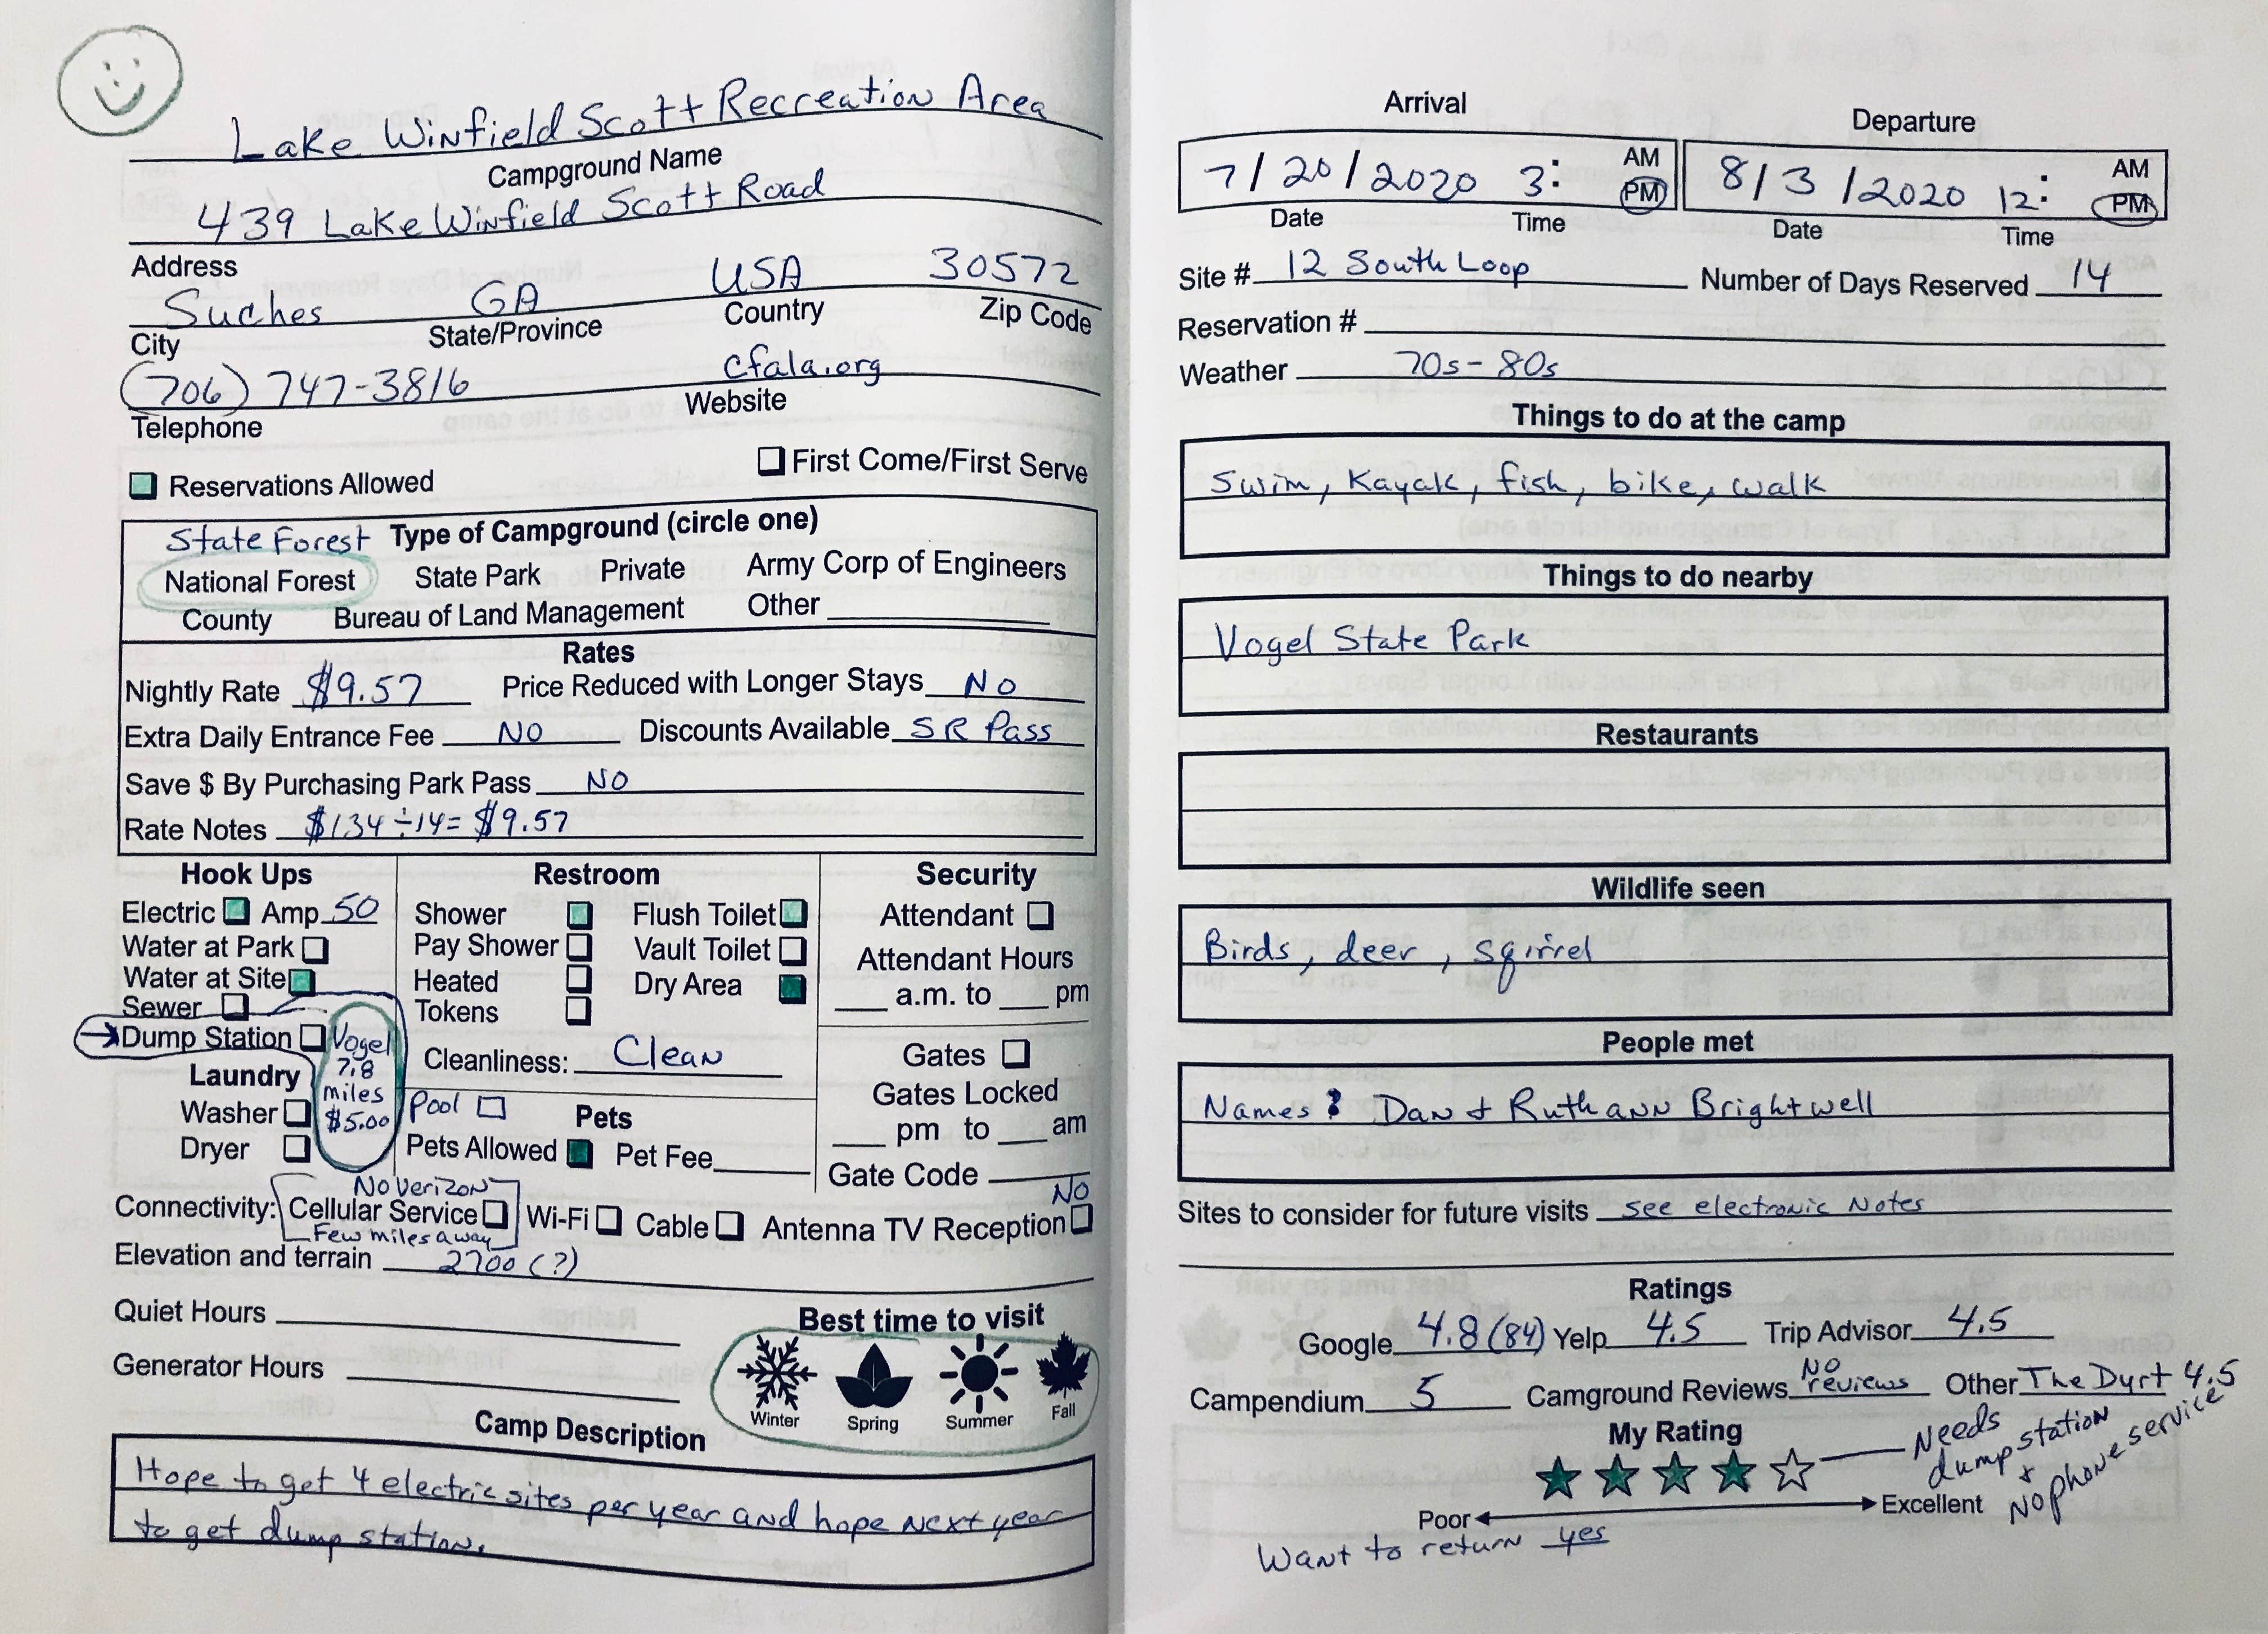 Lake Winfield Scott Recreation Area
Campground Name
439 Lake Winfield Scott Road
Address
Suches GA USA 30572
City State/Province Country Zip Code
(706) 747-3816 cfala.org
Telephone Website
Reservations Allowed First Come/First Serve
State Forest Type of Campground (circle one)
National Forest State Park Private Army Corp of Engineers
County Bureau of Land Management Other
Rates
Nightly Rate $9.57 Price Reduced with Longer Stays No
Extra Daily Entrance Fee No Discounts Available SR Pass
Save $ By Purchasing Park Pass No
Rate Notes $134 ÷ 14 = $9.57
Hook Ups
Electric Amp 50
Water at Park
Water at Site
Sewer
→ Dump Station Vogel
7.8
miles
$5.00
Laundry
Washer
Dryer
Restroom
Shower Flush Toilet
Pay Shower Vault Toilet
Heated Dry Area
Tokens
Cleanliness: Clean
Pool Pets
Pets Allowed Pet Fee
Security
Attendant
Attendant Hours
a.m. to pm
Gates
Gates Locked
pm to am
Gate Code
No Verizon No
Connectivity: Cellular Service Wi-Fi Cable Antenna TV Reception
Few miles away
Elevation and terrain 2700 (?)
Quiet Hours
Generator Hours
Best time to visit
Winter Spring Summer Fall
Camp Description
Hope to get 4 electric sites per year and hope next year
to get dump station.
Arrival Departure
7/20/2020 3: AM PM 8/3/2020 12: AM PM
Date Time Date Time
Site # 12 South Loop Number of Days Reserved 14
Reservation #
Weather 70s - 80s
Things to do at the camp
Swim, Kayak, fish, bike, walk
Things to do nearby
Vogel State Park
Restaurants
Wildlife seen
Birds, deer, sqirrel
People met
Names: Dan + Ruthann Brightwell
Sites to consider for future visits see electronic Notes
Ratings
Google 4.8 (84) Yelp 4.5 Trip Advisor 4.5
Campendium 5 Camground Reviews No reviews Other The Dyrt 4.5
My Rating
Needs
dump station
+
No phone service
Poor Excellent
Want to return yes